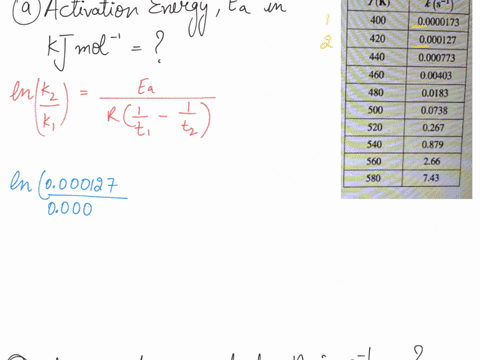 (a) Activation Energy, Ea in
KJ mol⁻¹ = ?
ln(k₂/k₁) = Ea / R(1/t₁ - 1/t₂)
ln(0.000127
0.000
T (K) k (s⁻¹)
1 400 0.0000173
2 420 0.000127
440 0.000773
460 0.00403
480 0.0183
500 0.0738
520 0.267
540 0.879
560 2.66
580 7.43